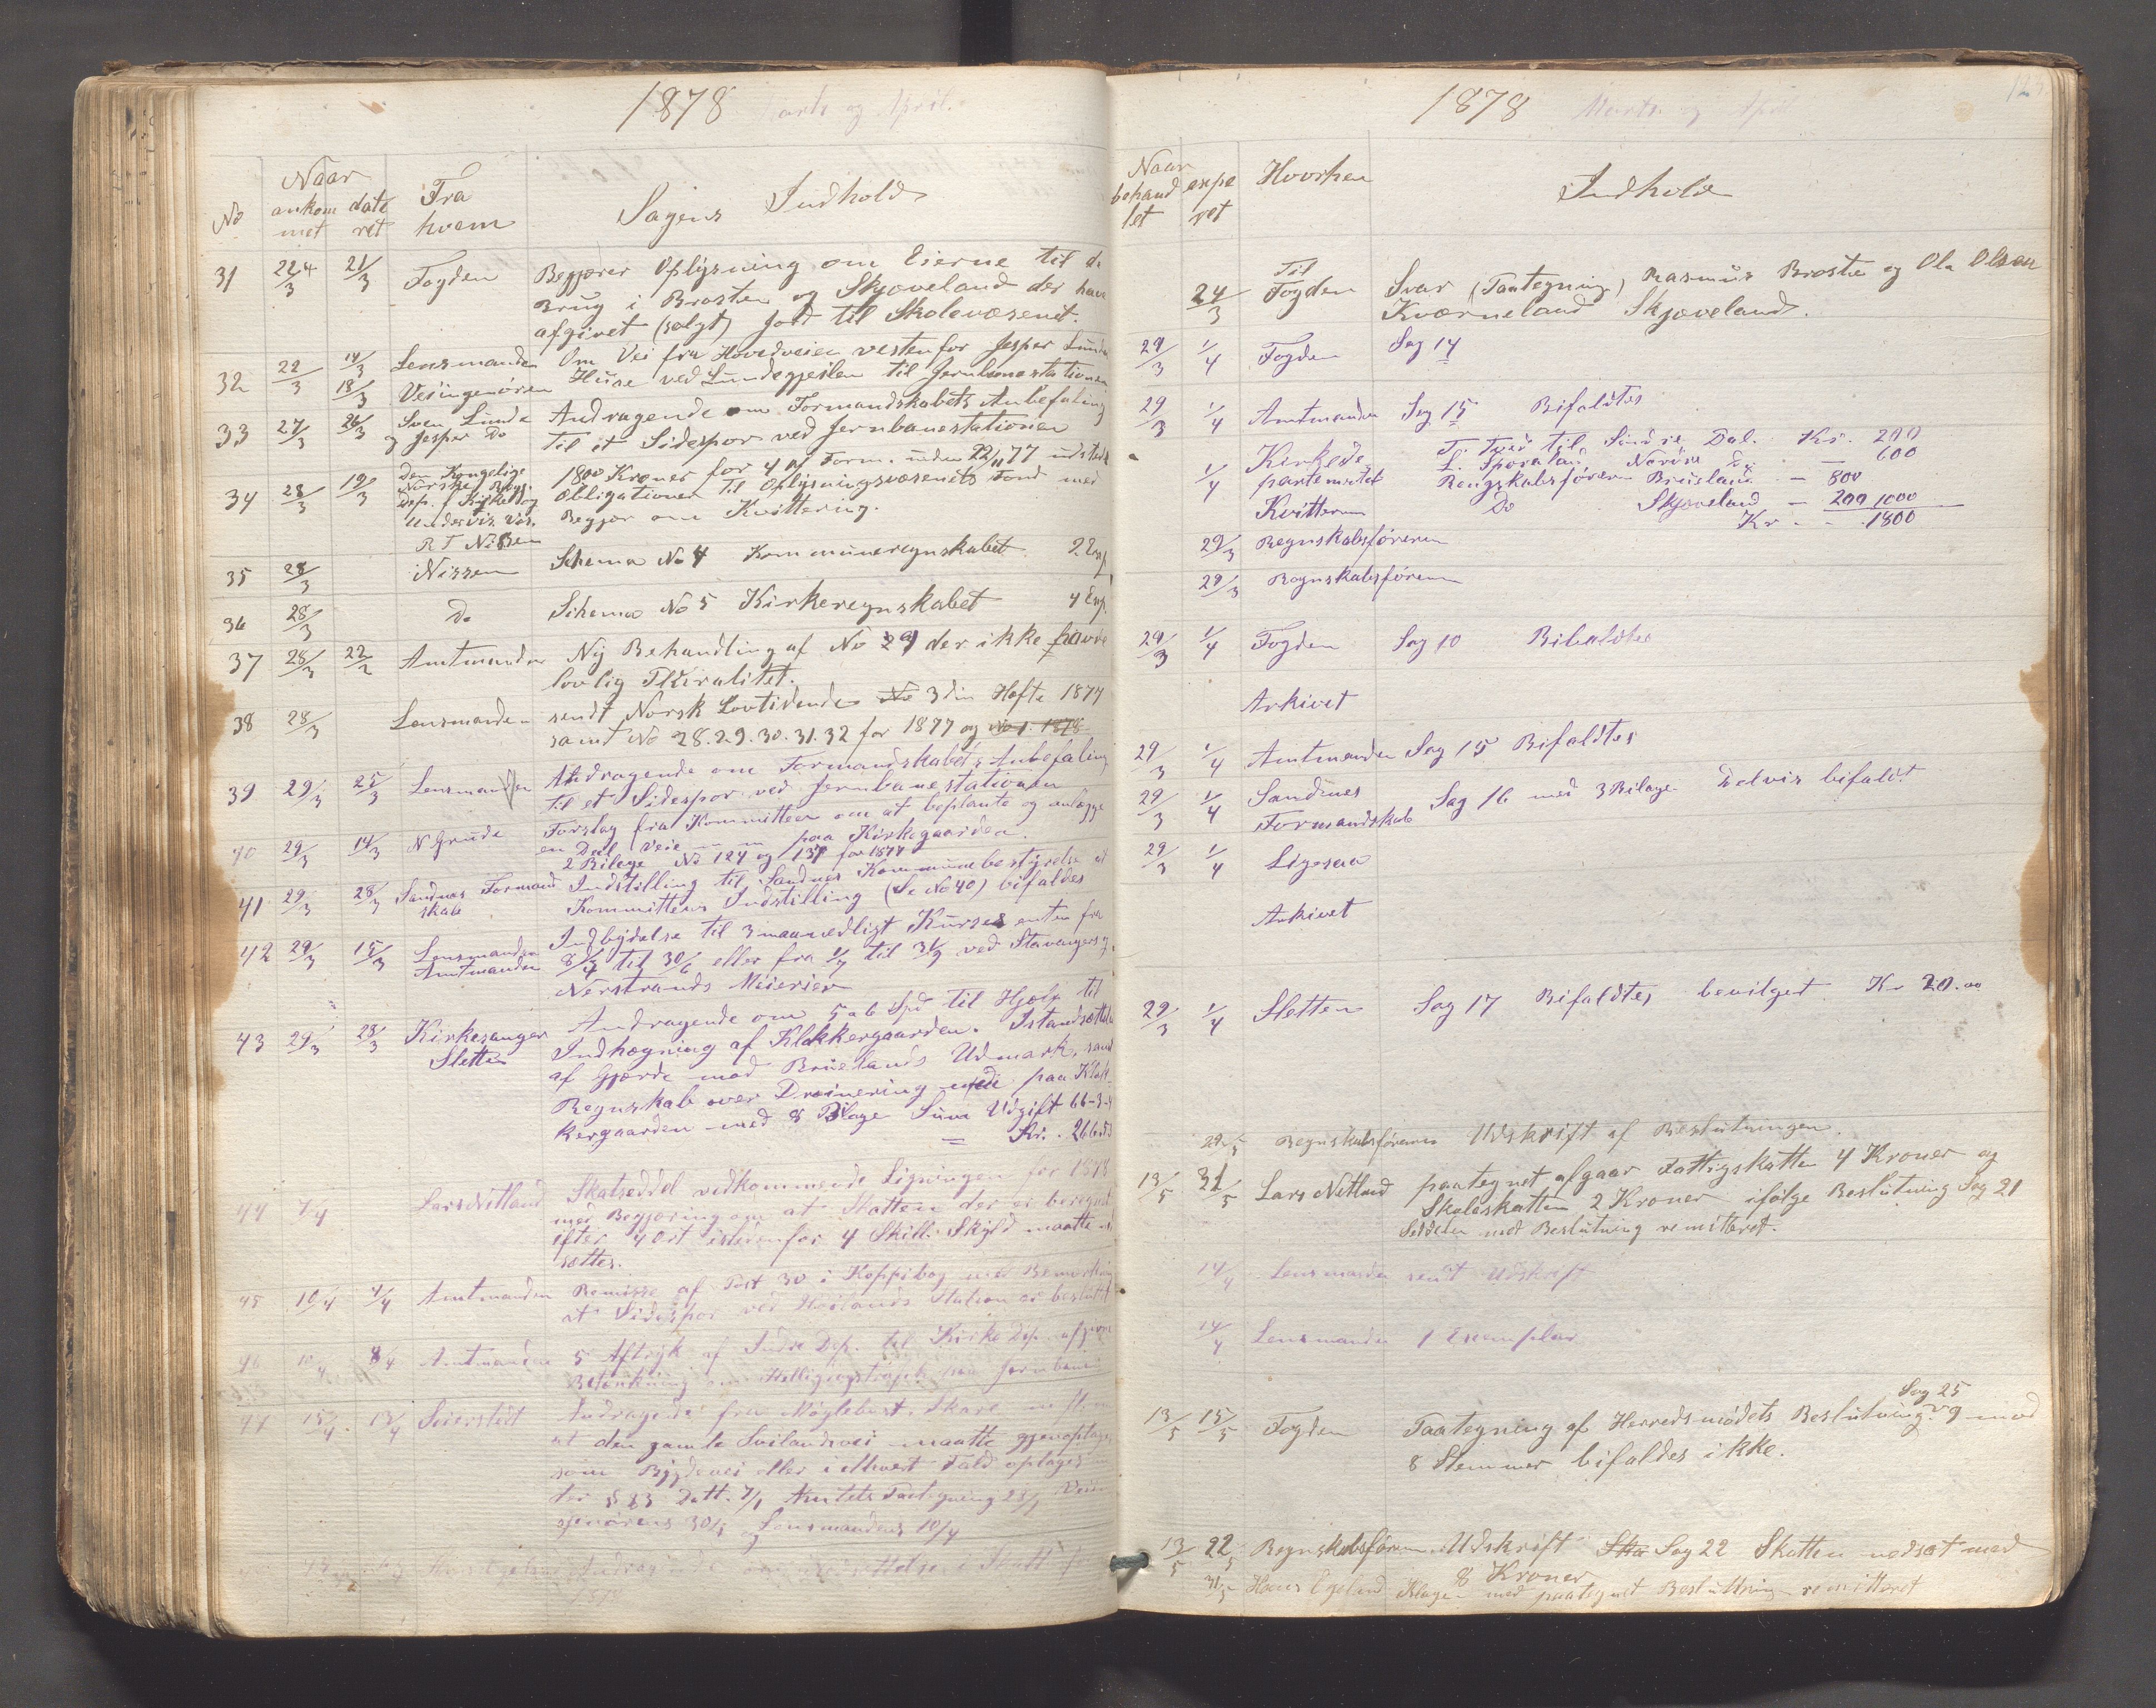 1878 Marts og April.
No
Naar
ankom
met
date
ret
Fra
hvem
Sagens Indhold
31 22/3 21/3 Fogden Begjærer Oplysning om Eierne til de
Brug i Brosten og Skjæveland der have
afgivet (solgt) Jord til Skolevæsenet.
32 22/3 14/3 Lensmanden Om Vei fra Hovedveien vestenfor Jesper Lunde
18/3 Veiingeniøren Huse ved Lundegjeilen til Jernbanestationen
33 27/3 26/3 Sven Lunde Andragende om Formandskabets Anbefaling
og Jesper Do til et Sidespor ved Jernbanestationen
34 28/3 19/3 Den Kongelige 1800 Kroner for 4 af Form. under 22/11 77 udstedte
Norske Regj. Obligationer til Oplysningsvæsenets Fond med
Dep. f Kirke og
Undervis. Væs. Begjær om Kvittering.
R T Nissen
35 28/3 Nissen Schema No 4 Kommuneregnskabet 2 Exp.
36 28/3 Do Schema No 5 Kirkeregnskabet 4 Exp.
37 28/3 22/2 Amtmanden Ny Behandling af No 29 der ikke havde
lovlig Pluralitet.
38 28/3 Lensmanden sendt Norsk Lovtidende No 3die Hefte 1877
samt No 28.29.30.31.32 for 1877 og No 1. 1878
39 29/3 25/3 Lensmanden Andragende om Formandskabets Anbefaling
til et Sidespor ved Jernbanestationen
40 29/3 14/3 N Grude Forslag fra Kommitteen om at beplante og anlægge
en Deel Veie paa Kirkegaarden.
2 Bilage No 124 og 137 for 1877
41 29/3 28/3 Sandnæs Formand Indstilling til Sandnes Kommunebestyrelse at
skab Kommitteens Indstilling (Se No 40) bifaldes
42 29/3 15/3 Lensmanden Indbydelse til 3 maanedligt Kurser enten fra
Amtmanden 8/4 til 30/6 eller fra 1/7 til 31/9 ved Stavangers og
Nerstrands Meierier
43 29/3 28/3 Kirkesanger Andragende om 5 a 6 Spd til Hjælp til
Sletten Indhegning af Klokkergaarden. Istandsættelse
af Gjærde mod Bruelands Udmark, samt
Regnskab over Dreinering nede paa Klok-
kergaarden med 8 Bilage Suma Udgift 66-3-
Kr. 266
44 7/4 Lars Nitland Skatseddel vedkommende Ligningen for 1878
med Begjæring om at Skatten der er beregnet
efter 4 Ort istedenfor 4 Skill. Skyld maatte ned
sættes.
45 10/4 4/4 Amtmanden Remisse af Post 30 i Koppibog med Bemerkning
at Sidespor ved Høilands Station er besluttet
46 10/4 8/4 Amtmanden 5 Aftryk af Indre Dep. til Kirke Dep. afgivne
Betænkning om Helligdagstrafik paa Jernbanen
47 15/4 13/4 Seierstedt Andragende fra Møglebust, Skare m fl om
at den gamle Svilandsvei maatte gjenoptages
som Bygdevei eller i ethvert Fald optages
ter § 23 Datt. 7/1 Amtets Paategning 23/1 Veiin
geniørens 30/1 og Lensmandens 10/4
Andragende
1878 Marts og April
Naar
behand
let
expe
ret
Hvorhen
Indhold
24/3 Til Fogden Svar (Paategning) Rasmus Brosten og Ola Olsen
Kværneland Skjæveland.
29/3 1/4 Fogden Sag 14
29/3 1/4 Amtmanden Sag 15 Bifaldtes
1/4 Kirkede
partementet
Kvitteren
T. Tved til Søndre Dal. Kr. 200
L. Sporaland Nordre Do — 600
Rengskabsføreren Brueland — 800
Do Skjæveland — 200 1000
Kr. — 1800
29/3 Regnskabsføreren
29/3 Regnskabsføreren
29/3 1/4 Fogden Sag 10 Bifaldtes
Arkivet
29/3 1/4 Amtmanden Sag 15 Bifaldtes
29/3 1/4 Sandnes
Formandskab Sag 16 med 3 Bilage. Delvis bifaldt
29/3 1/4 Ligesaa
Arkivet
29/3 1/4 Sletten Sag 17 Bifaldtes bevilget Kr 20.00
29/5 Regnskabsføreren Udskrift af Beslutningen.
13/5 31/5 Lars Nitland paategnet afgaar Fattigskatten 4 Kroner og
Skoleskatten 2 Kroner ifølge Beslutning Sag 21
Seddelen med Beslutning remitteret.
14/4 Lensmanden sendt Udskrift
14/4 Lensmanden 1 Exemplar
13/5 15/5 Fogden Paategning af Herredsmødets Beslutning. Sag 25 9 mod
8 Stemmer bifaldes ikke.
13/5 22/5 Regnskabsføreren Udskrift Ska Sag 22 Skatten nedsat med
8 Kroner
31/5 Hans Egeland Klage med paategnet Beslutning remitteret